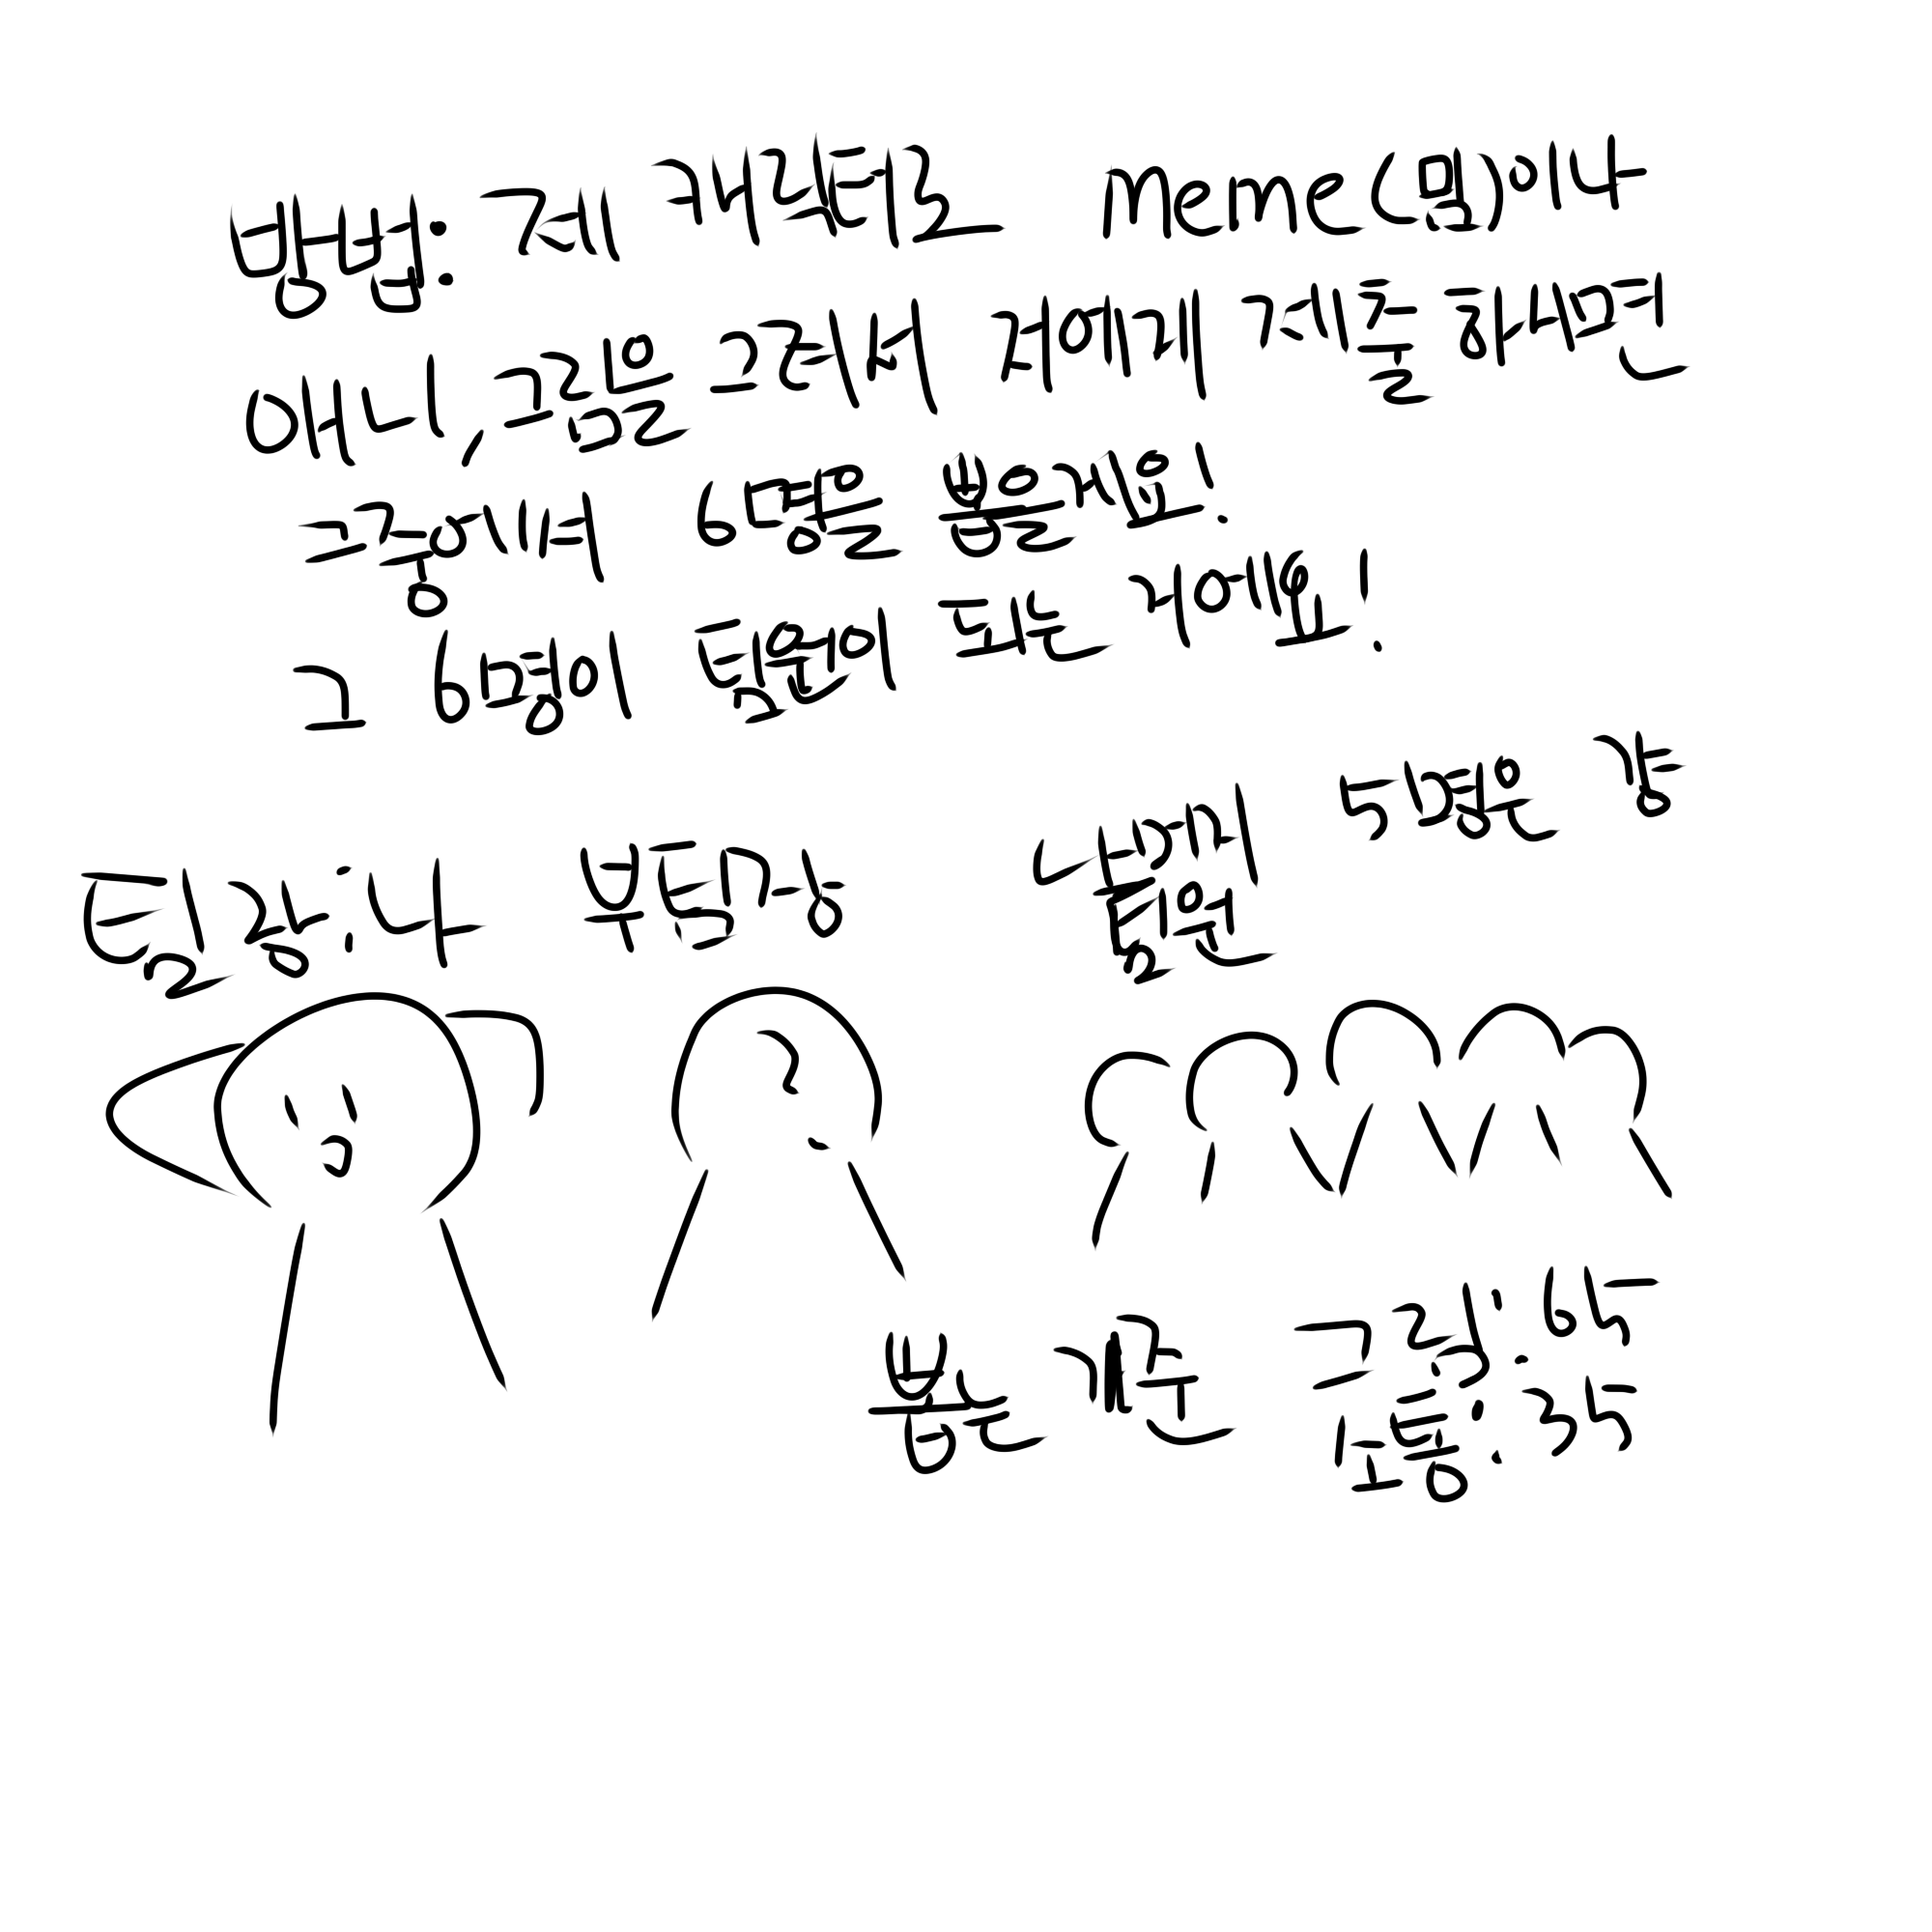 방법: 제 캐릭터로 meme(밈)이나
애니, 그림을 그려서 저에게 제출하면
그중에서 6명을 뽑을게요!
그 6명이 팀원이 되는 거에요!
팀장: 나
부팀장
나머지 팀원
5명은 걍
뽑는 기준
그림: 65
소통: 35